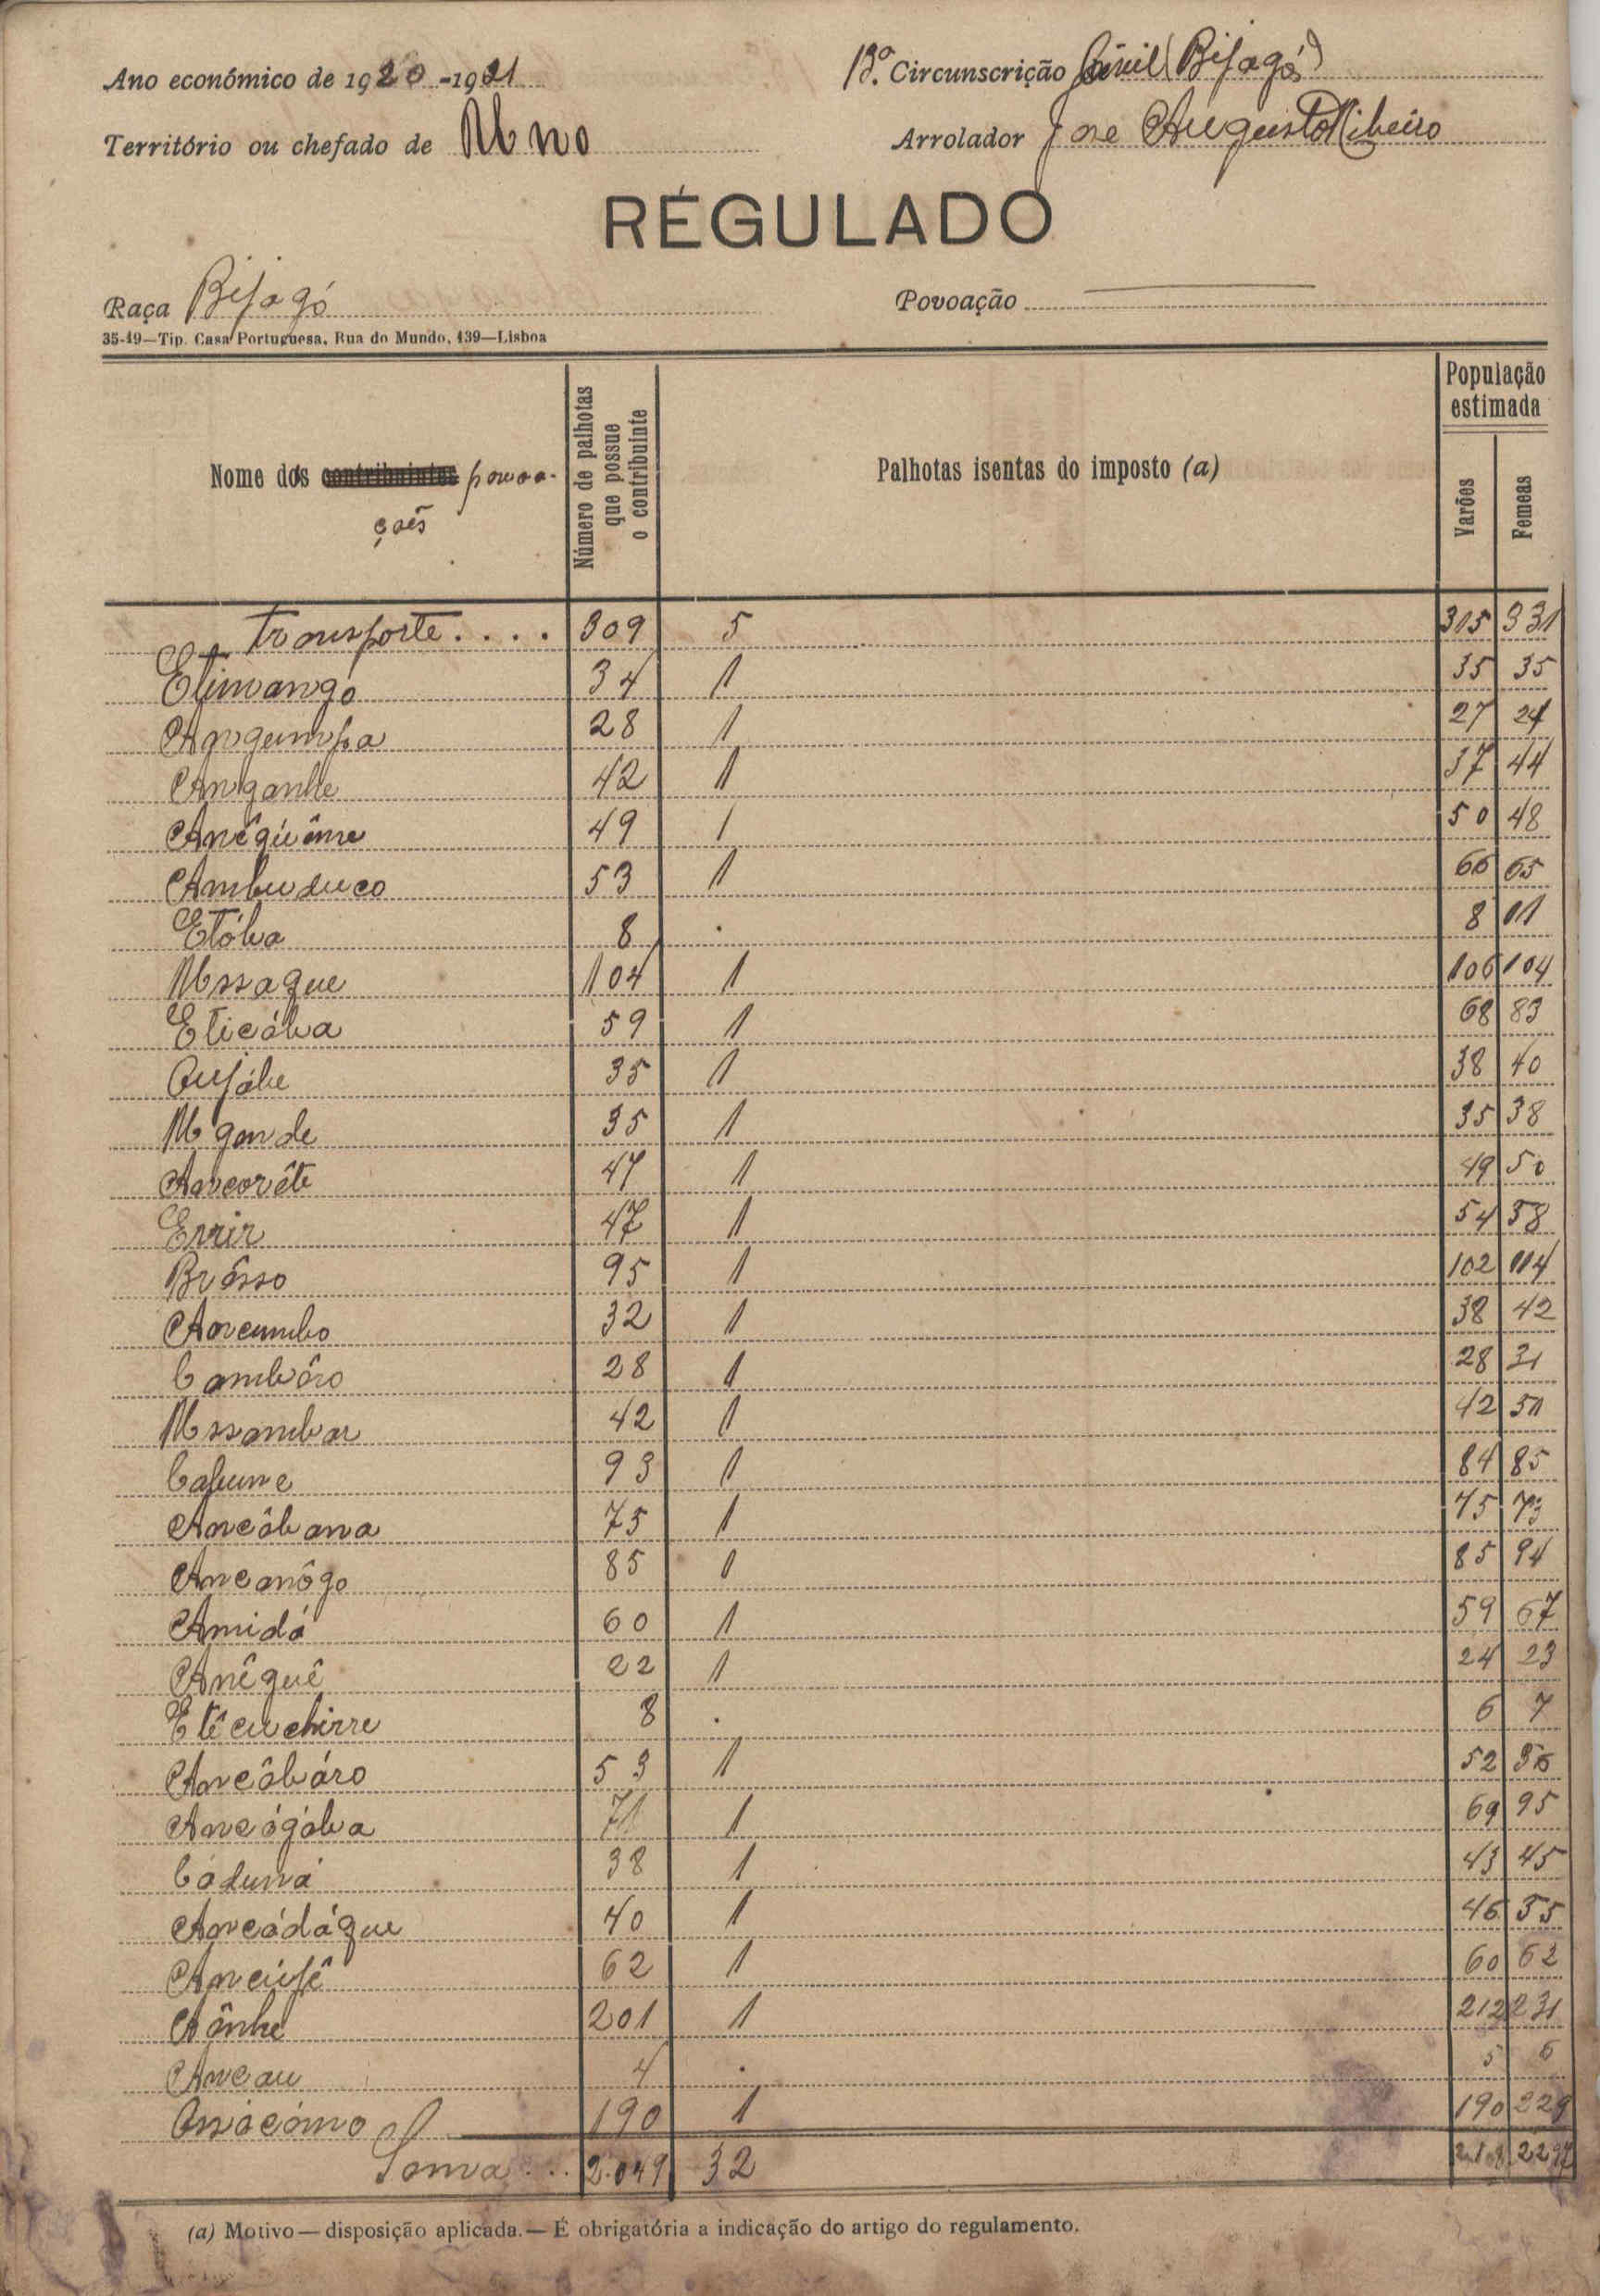 Ano económico de 1920-1921
13.ª Circunscrição Civil (Bijagós)
Território ou chefado de Uno
Arrolador Jose Augusto Ribeiro
RÉGULADO
Raça Bijagó
Povoação
35-19—Tip. Casa Portuguesa, Rua do Mundo, 139—Lisboa
Nome dos contribuintes povoações
Número de palhotas que possue o contribuinte
Palhotas isentas do imposto (a)
População estimada
Varões
Femeas
Transporte.... 309 5 315 331
Etimango 34 1 35 35
Angumpa 28 1 27 24
Anganhe 42 1 37 44
Anêguême 49 1 50 48
Ambuduco 53 1 66 65
Etóba 8 . 8 11
Ussaque 104 1 106 104
Eticóba 59 1 68 83
35 1 38 40
Ugande 35 1 35 38
Ancorête 47 1 49 50
Errir 47 1 54 58
Brôsso 95 1 102 114
Ancumbo 32 1 38 42
Cambôro 28 1 28 31
Ussambar 42 1 42 51
Cafune 93 1 84 85
Ancôbana 75 1 75 73
Ancanôgo 85 1 85 94
Amidá 60 1 59 67
Anêguê 22 1 24 23
Etêcuchirre 8 . 6 7
Ancôbáro 53 1 52 56
Ancógóba 71 1 69 95
Códuná 38 1 43 45
Ancádáque 40 1 46 55
Ancúfê 62 1 60 62
Aônhe 201 1 212 231
Ancau 4 . 5 6
190 1 190 229
Soma... 2.049 32 2297
(a) Motivo—disposição aplicada.—É obrigatória a indicação do artigo do regulamento.